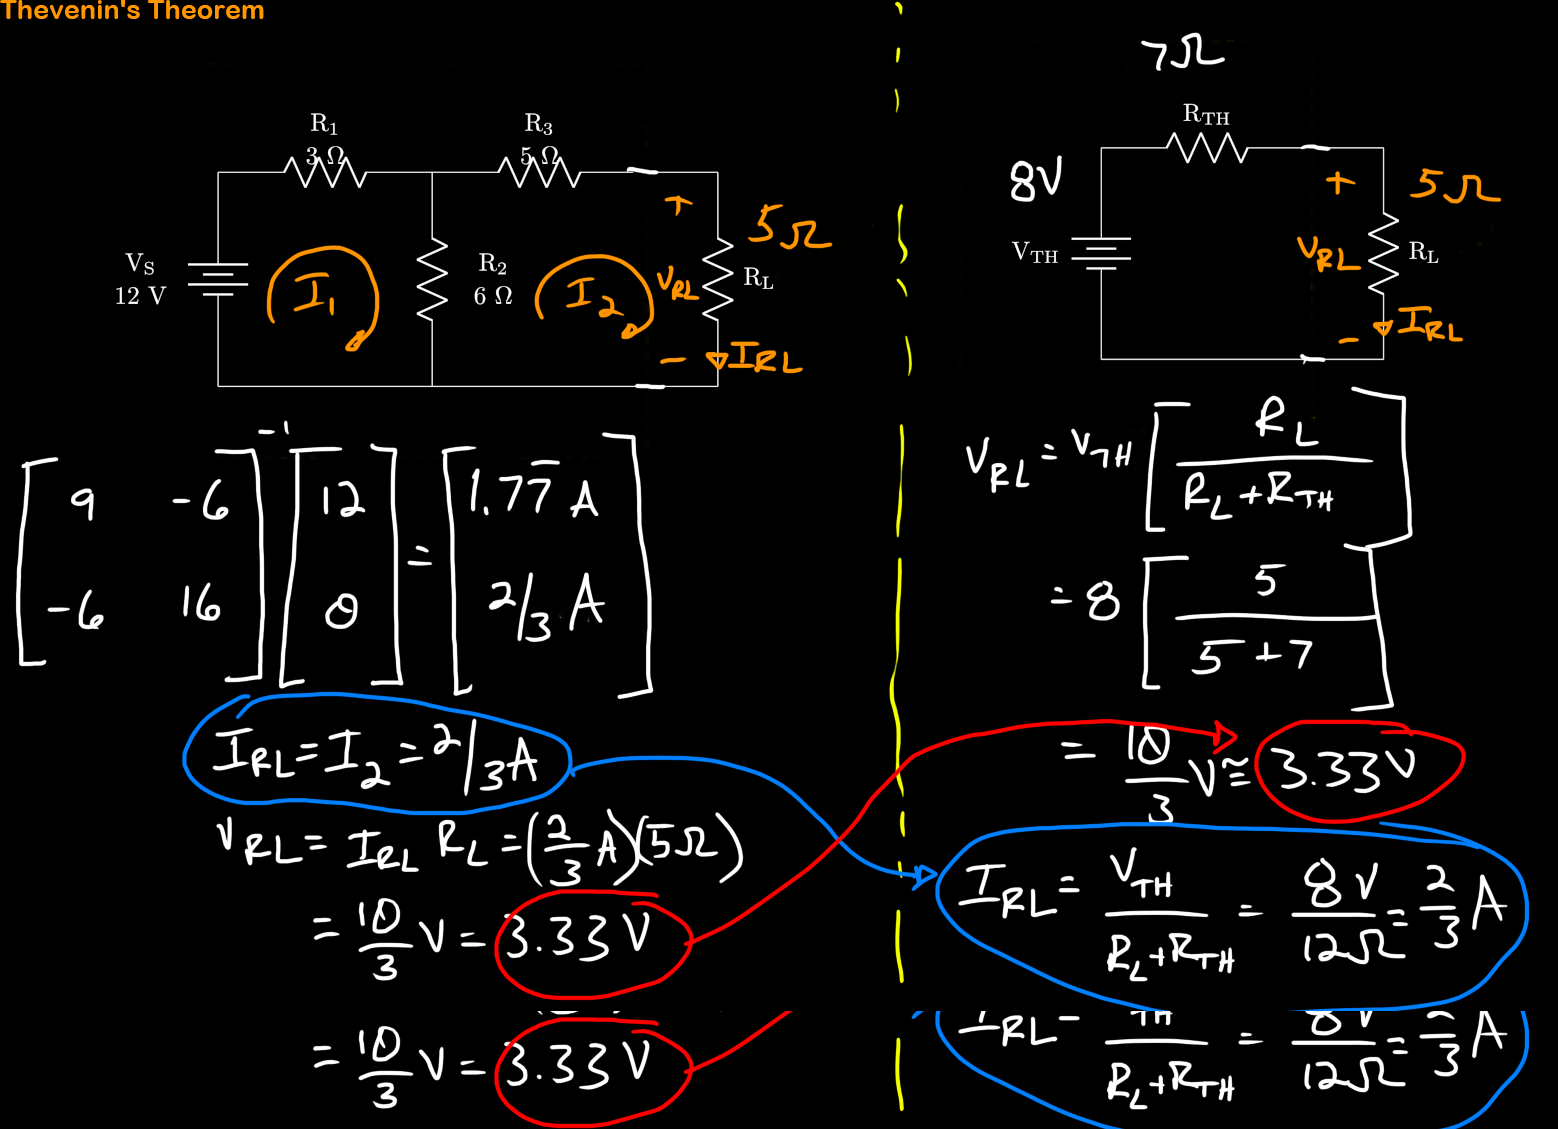 Thevenin's Theorem
R₁
3 Ω
R₃
5 Ω
V_S
12 V
I₁
R₂
6 Ω
I₂
+
V_RL
-
5Ω
R_L
I_RL
[9 -6; -6 16]⁻¹ [12; 0] = [1.77̅ A; 2/3 A]
I_RL = I₂ = 2/3 A
V_RL = I_RL R_L = (2/3 A)(5Ω)
= 10/3 V = 3.33 V
= 10/3 V = 3.33 V
7Ω
R_TH
8V
V_TH
+
V_RL
-
5Ω
R_L
I_RL
V_RL = V_TH [R_L / (R_L + R_TH)]
= 8 [5 / (5+7)]
= 10/3 V ≅ 3.33V
I_RL = V_TH / (R_L + R_TH) = 8V / 12Ω = 2/3 A
I_RL = V_TH / (R_L + R_TH) = 8V / 12Ω = 2/3 A